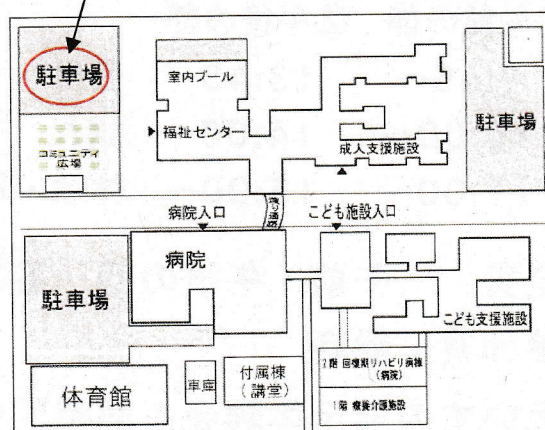 駐車場
室内プール
福祉センター
コミュニティ
広場
成人支援施設
駐車場
病院入口
渡り通路
こども施設入口
病院
駐車場
こども支援施設
体育館
車庫
付属棟
(講堂)
2階 回復期リハビリ病棟
(病院)
1階 療養介護施設